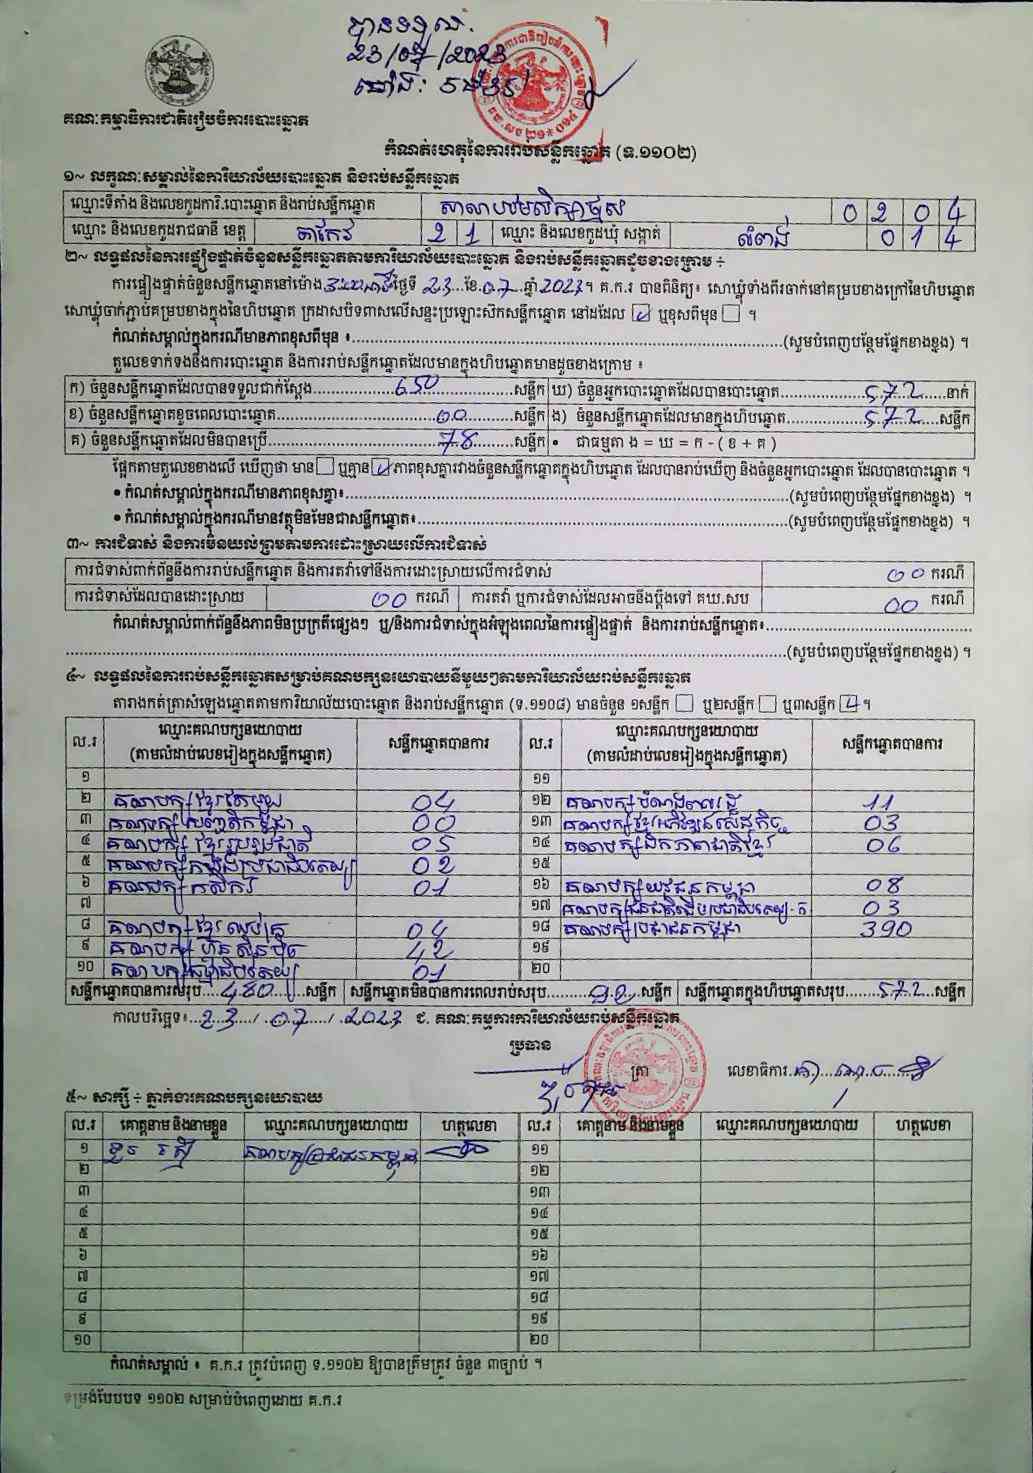 បានទទួល
23/07/2023
ម៉ោង:
គណៈកម្មាធិការជាតិរៀបចំការបោះឆ្នោត
កំណត់ហេតុនៃការរាប់សន្លឹកឆ្នោត (ទ.១១០២)
១~ លក្ខណៈសម្គាល់នៃការិយាល័យបោះឆ្នោត និងរាប់សន្លឹកឆ្នោត
ឈ្មោះទីតាំង និងលេខកូដការិ.បោះឆ្នោត និងរាប់សន្លឹកឆ្នោត សាលាបឋមសិក្សា 0 2 0 4
ឈ្មោះ និងលេខកូដរាជធានី ខេត្ត តាកែវ 2 1 ឈ្មោះ និងលេខកូដឃុំ សង្កាត់ លំពង់ 0 1 4
២~ លទ្ធផលនៃការផ្ទៀងផ្ទាត់ចំនួនសន្លឹកឆ្នោតតាមការិយាល័យបោះឆ្នោត និងរាប់សន្លឹកឆ្នោតដូចខាងក្រោម ÷
ការផ្ទៀងផ្ទាត់ចំនួនសន្លឹកឆ្នោតនៅម៉ោង ថ្ងៃទី 23 ខែ 07 ឆ្នាំ 2023 ។ គ.ក.រ បានពិនិត្យ៖ សោឃ្លុំទាំងពីរចាក់នៅគម្របខាងក្រៅនៃហិបឆ្នោត
សោឃ្លុំចាក់ភ្ជាប់គម្របខាងក្នុងនៃហិបឆ្នោត ក្រដាសបិទពាសលើសន្ទះប្រឡោះសឹកសន្លឹកឆ្នោត នៅដដែល ☑ ឬខុសពីមុន ☐ ។
កំណត់សម្គាល់ក្នុងករណីមានភាពខុសពីមុន ៖ (សូមបំពេញបន្ថែមផ្នែកខាងខ្នង) ។
តួលេខទាក់ទងនឹងការបោះឆ្នោត និងការរាប់សន្លឹកឆ្នោតដែលមានក្នុងហិបឆ្នោតមានដូចខាងក្រោម ៖
ក) ចំនួនសន្លឹកឆ្នោតដែលបានទទួលជាក់ស្តែង 650 សន្លឹក ឃ) ចំនួនអ្នកបោះឆ្នោតដែលបានបោះឆ្នោត 572 នាក់
ខ) ចំនួនសន្លឹកឆ្នោតខូចពេលបោះឆ្នោត 00 សន្លឹក ង) ចំនួនសន្លឹកឆ្នោតដែលមានក្នុងហិបឆ្នោត 572 សន្លឹក
គ) ចំនួនសន្លឹកឆ្នោតដែលមិនបានប្រើ 78 សន្លឹក • ជាធម្មតា ង = ឃ = ក - ( ខ + គ )
ផ្អែកតាមតួលេខខាងលើ ឃើញថា មាន ☐ ឬគ្មាន ☑ ភាពខុសគ្នារវាងចំនួនសន្លឹកឆ្នោតក្នុងហិបឆ្នោត ដែលបានរាប់ឃើញ និងចំនួនអ្នកបោះឆ្នោត ដែលបានបោះឆ្នោត ។
• កំណត់សម្គាល់ក្នុងករណីមានភាពខុសគ្នា៖ (សូមបំពេញបន្ថែមផ្នែកខាងខ្នង) ។
• កំណត់សម្គាល់ក្នុងករណីមានវត្ថុមិនមែនជាសន្លឹកឆ្នោត៖ (សូមបំពេញបន្ថែមផ្នែកខាងខ្នង) ។
៣~ ការជំទាស់ និងការមិនយល់ព្រមតាមការដោះស្រាយលើការជំទាស់
ការជំទាស់ពាក់ព័ន្ធនឹងការរាប់សន្លឹកឆ្នោត និងការតវ៉ាទៅនឹងការដោះស្រាយលើការជំទាស់ 00 ករណី
ការជំទាស់ដែលបានដោះស្រាយ 00 ករណី ការតវ៉ា ឬការជំទាស់ដែលអាចនឹងប្តឹងទៅ គឃ.សប 00 ករណី
កំណត់សម្គាល់ពាក់ព័ន្ធនឹងភាពមិនប្រក្រតីផ្សេងៗ ឬ/និងការជំទាស់ក្នុងអំឡុងពេលនៃការផ្ទៀងផ្ទាត់ និងការរាប់សន្លឹកឆ្នោត៖
(សូមបំពេញបន្ថែមផ្នែកខាងខ្នង) ។
៤~ លទ្ធផលនៃការរាប់សន្លឹកឆ្នោតសម្រាប់គណបក្សនយោបាយនីមួយៗតាមការិយាល័យរាប់សន្លឹកឆ្នោត
តារាងកត់ត្រាសំឡេងឆ្នោតតាមការិយាល័យបោះឆ្នោត និងរាប់សន្លឹកឆ្នោត (ទ.១១០៨) មានចំនួន ១សន្លឹក ☐ ឬ២សន្លឹក ☐ ឬ៣សន្លឹក ☑ ។
ល.រ ឈ្មោះគណបក្សនយោបាយ (តាមលំដាប់លេខរៀងក្នុងសន្លឹកឆ្នោត) សន្លឹកឆ្នោតបានការ ល.រ ឈ្មោះគណបក្សនយោបាយ (តាមលំដាប់លេខរៀងក្នុងសន្លឹកឆ្នោត) សន្លឹកឆ្នោតបានការ
១ ១១
២ គណបក្សខ្មែរតែមួយ 04 ១២ គណបក្ស 11
៣ គណបក្ស កម្ពុជា 00 ១៣ គណបក្សខ្មែរអភិវឌ្ឍន៍សេដ្ឋកិច្ច 03
៤ គណបក្ស ខ្មែររួបរួមជាតិ 05 ១៤ គណបក្សឯកភាពជាតិខ្មែរ 06
៥ គណបក្សកម្លាំងប្រជាធិបតេយ្យ 02 ១៥
៦ គណបក្ស កសិករ 01 ១៦ គណបក្សយុវជនកម្ពុជា 08
៧ ១៧ គណបក្សជនជាតិដើមប្រជាធិបតេយ្យ-ក 03
៨ គណបក្ស ខ្មែរឈប់ក្រ 04 ១៨ គណបក្សប្រជាជនកម្ពុជា 390
៩ គណបក្ស ហ៊្វុនស៊ិនប៉ិច 42 ១៩
១០ គណបក្សធម្មាធិបតេយ្យ 01 ២០
សន្លឹកឆ្នោតបានការសរុប 480 សន្លឹក សន្លឹកឆ្នោតមិនបានការពេលរាប់សរុប 92 សន្លឹក សន្លឹកឆ្នោតក្នុងហិបឆ្នោតសរុប 572 សន្លឹក
កាលបរិច្ឆេទ៖ 23 / 07 / 2023 ជ. គណៈកម្មការការិយាល័យរាប់សន្លឹកឆ្នោត
ប្រធាន
ត្រា លេខាធិការ
៥~ សាក្សី ÷ ភ្នាក់ងារគណបក្សនយោបាយ
ល.រ គោត្តនាម និងនាមខ្លួន ឈ្មោះគណបក្សនយោបាយ ហត្ថលេខា ល.រ គោត្តនាម និងនាមខ្លួន ឈ្មោះគណបក្សនយោបាយ ហត្ថលេខា
១ គណបក្សប្រជាជនកម្ពុជា ១១
២ ១២
៣ ១៣
៤ ១៤
៥ ១៥
៦ ១៦
៧ ១៧
៨ ១៨
៩ ១៩
១០ ២០
កំណត់សម្គាល់ ៖ គ.ក.រ ត្រូវបំពេញ ទ.១១០២ ឱ្យបានត្រឹមត្រូវ ចំនួន ៣ច្បាប់ ។
ទម្រង់បែបបទ ១១០២ សម្រាប់បំពេញដោយ គ.ក.រ